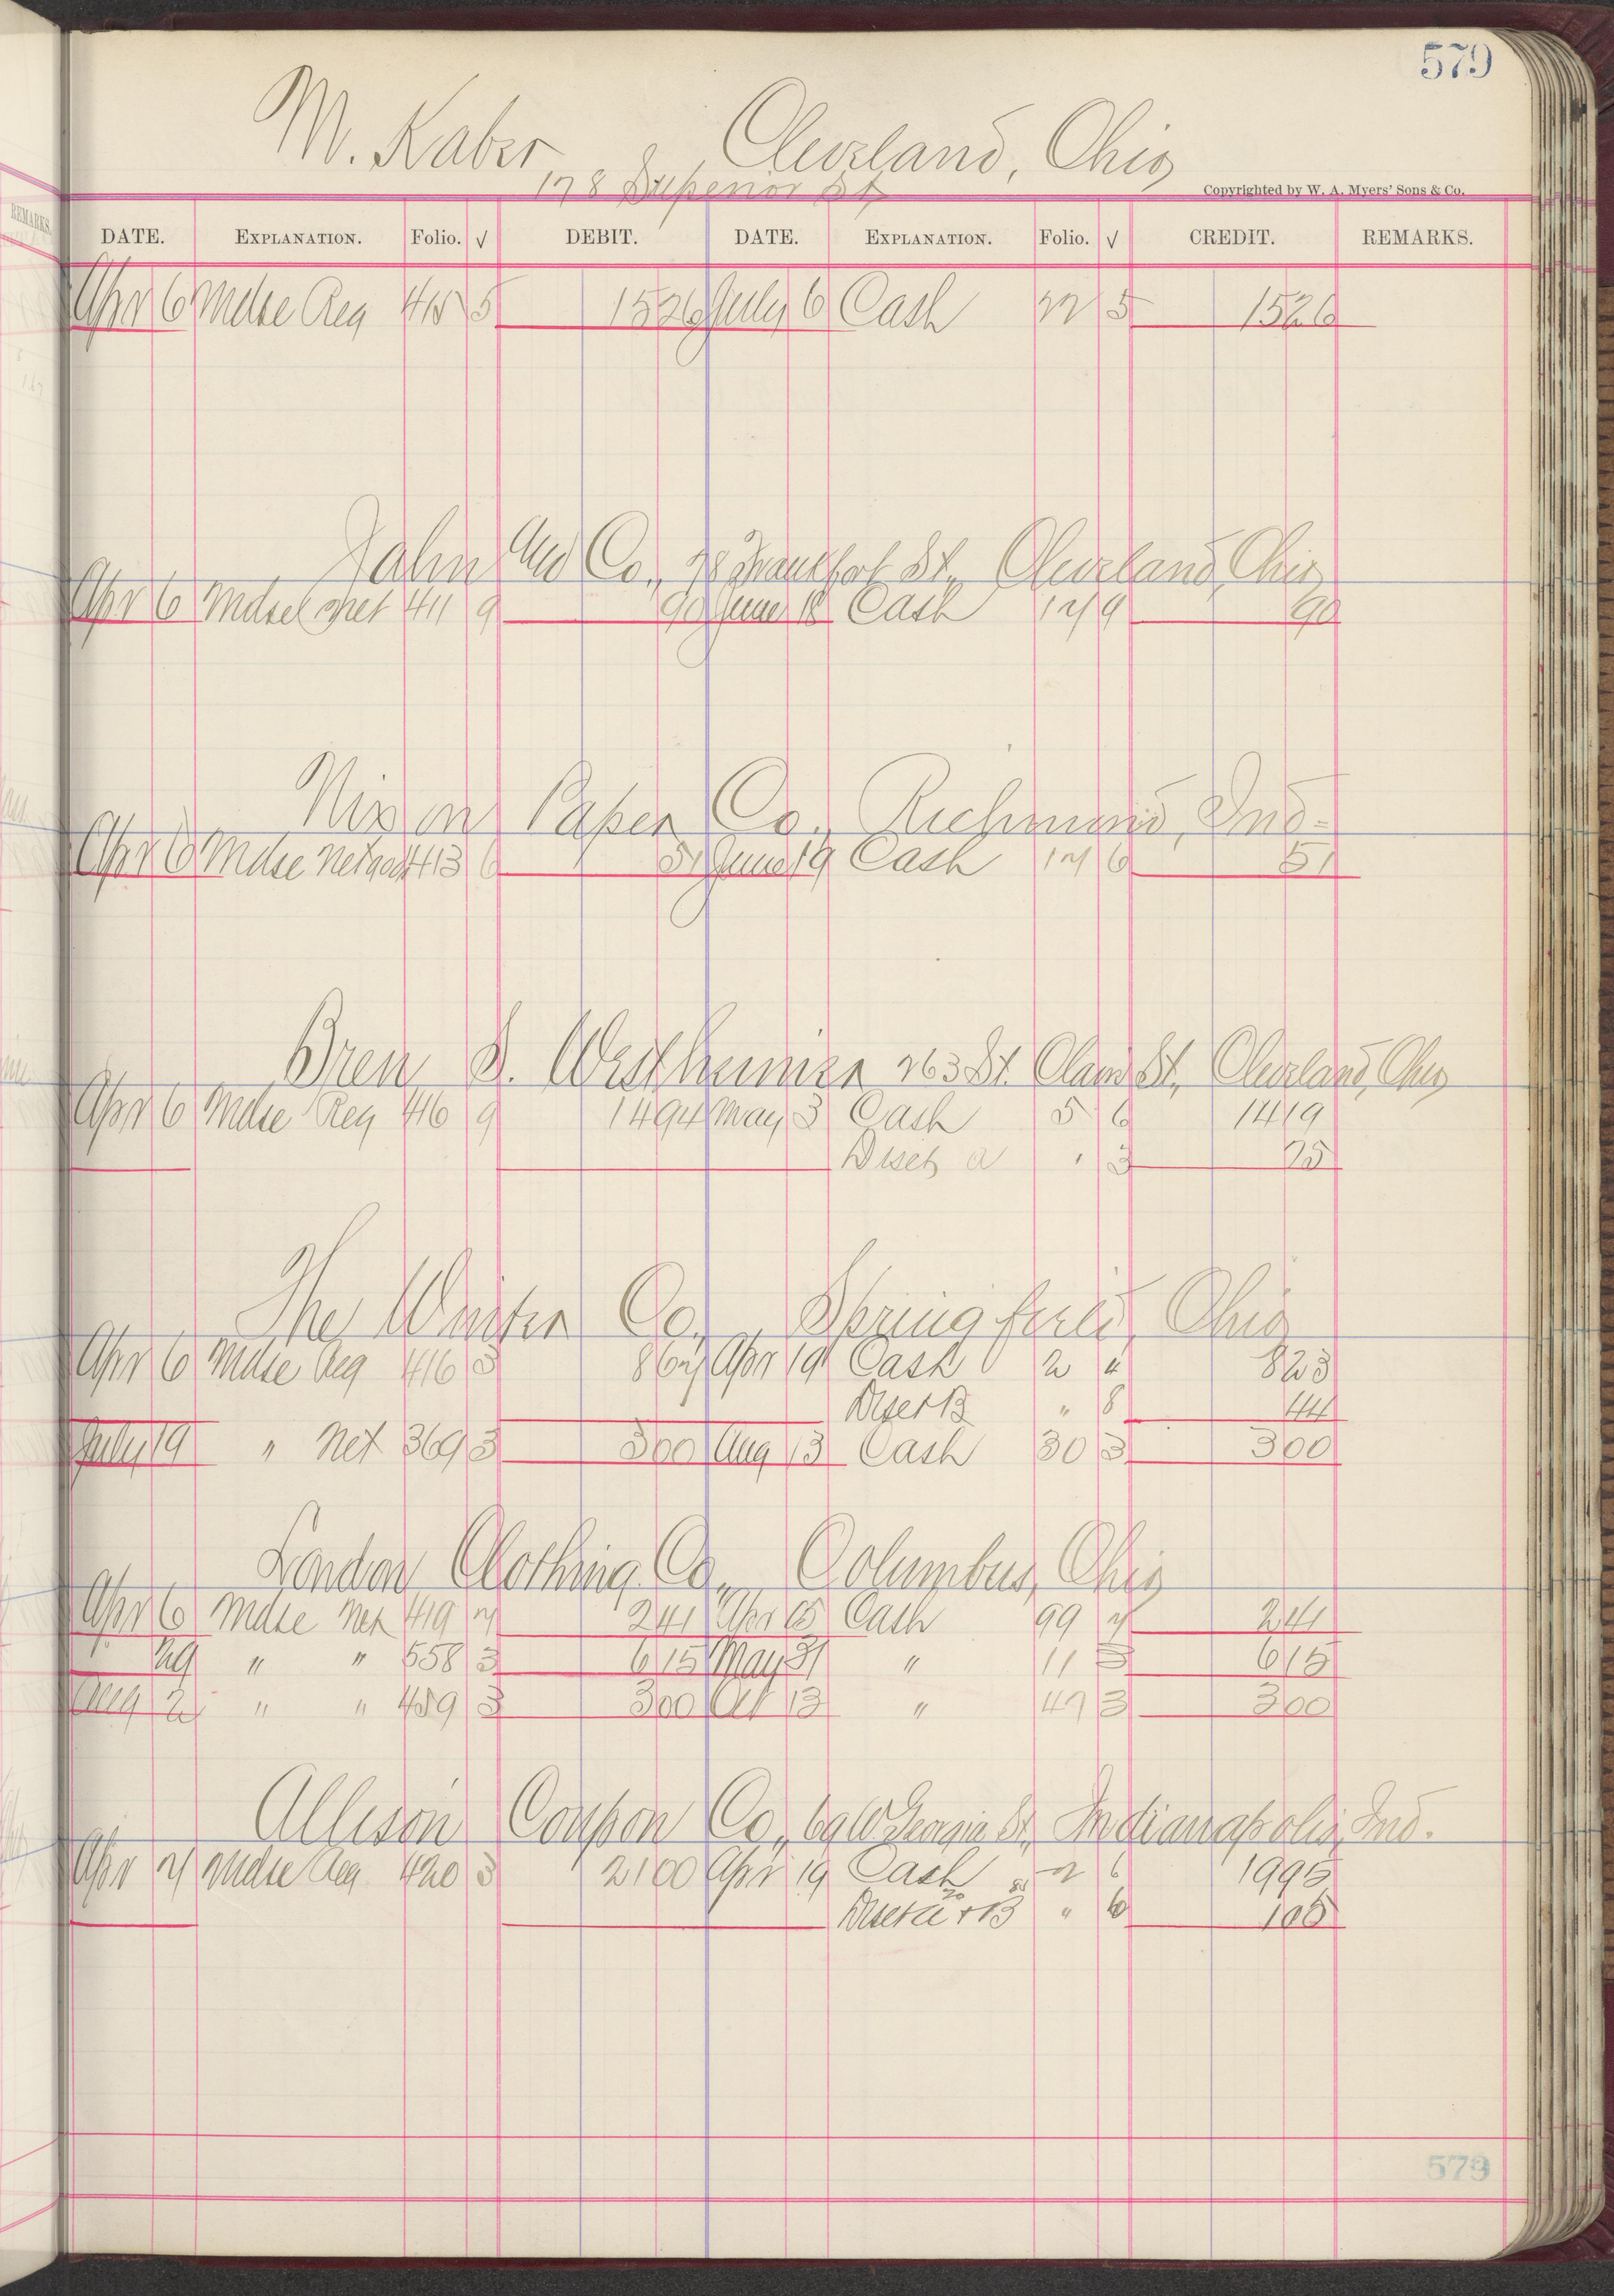 579
M. Kaber Cleveland, Ohio
178 Superior St
Copyrighted by W. A. Myers' Sons & Co.
DATE. EXPLANATION. Folio. √ DEBIT. DATE. EXPLANATION. Folio. √ CREDIT. REMARKS.
Apr 6 Mdse Reg 415 5 1526 July 6 Cash 22 5 1526
Co., 78 Frankfort St., Cleveland, Ohio
Apr 6 Mdse Net 411 9 90 June 18 Cash 17 9 90
Nixon Paper Co., Richmond, Ind.
Apr 6 Mdse Net 413 6 51 June 19 Cash 17 6 51
D. Westheimer 263 St. Clair St., Cleveland, Ohio
Apr 6 Mdse Reg 416 9 1494 May 3 Cash 5 6 1419
Disct a " 3 75
The Co., Springfield, Ohio
Apr 6 Mdse Reg 416 3 867 Apr 19 Cash 2 4 823
Disct B " 8 44
July 19 " Net 369 3 300 Aug 13 Cash 30 3 300
London Clothing Co., Columbus, Ohio
Apr 6 Mdse Net 419 7 241 Apr 15 Cash 99 7 241
29 " " 558 3 615 May 31 " 11 3 615
Aug 2 " " 459 3 300 Oct 13 " 47 3 300
Allison Coupon Co., 69 W Georgia St., Indianapolis, Ind.
Apr 7 Mdse Reg 420 3 2100 Apr 19 Cash 2 6 1995
Disct a + B " 6 105
579